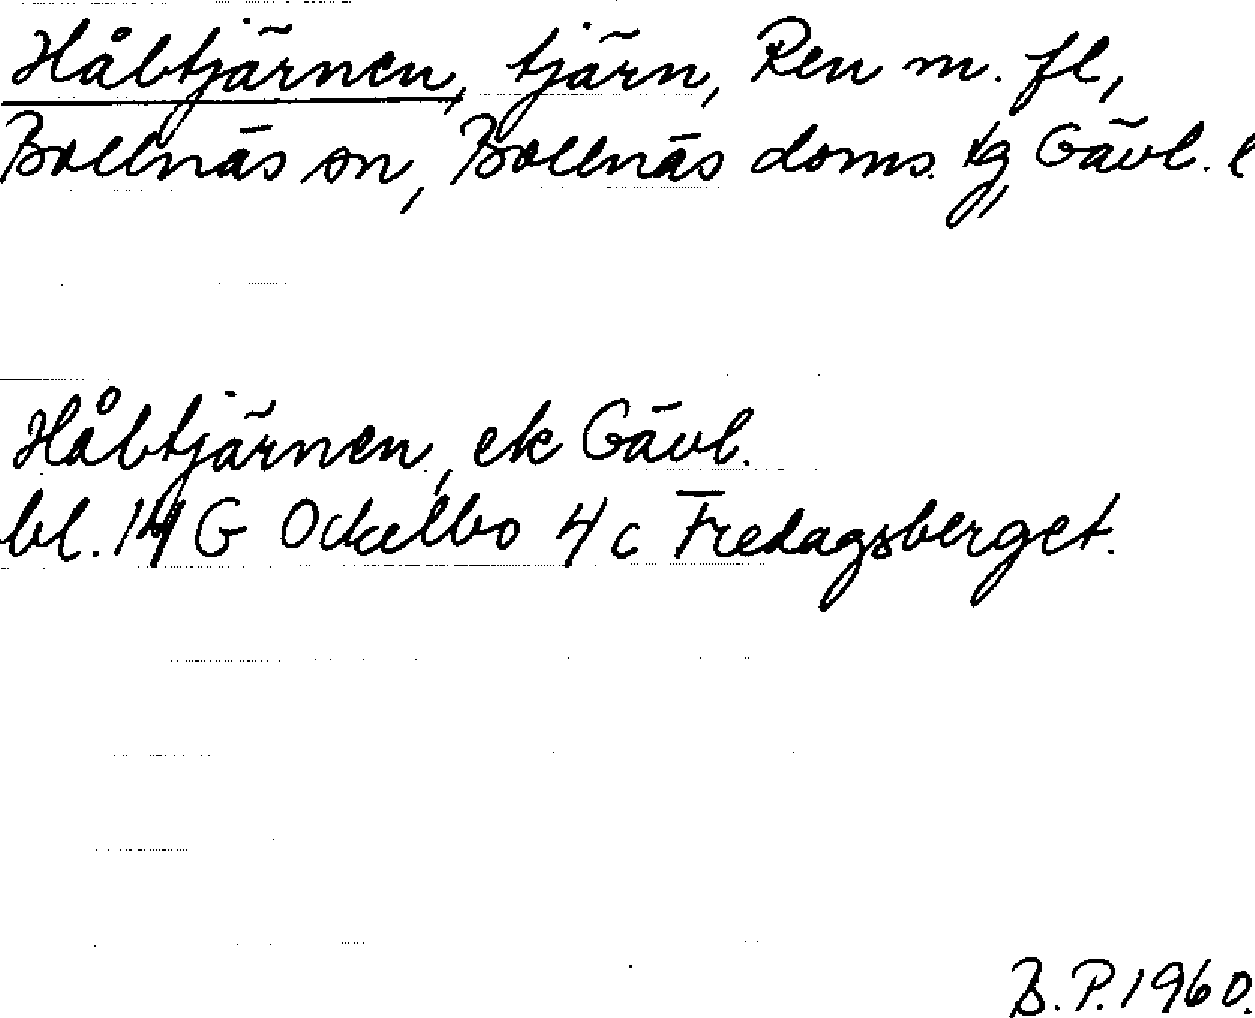 Håbtjärnen, tjärn, Ren m. fl,
Bollnäs sn, Bollnäs doms. tg, Gävl. l
Håbtjärnen, ek Gävl.
bl. 14 G Ockelbo 4 c Fredagsberget.
B. P. 1960.